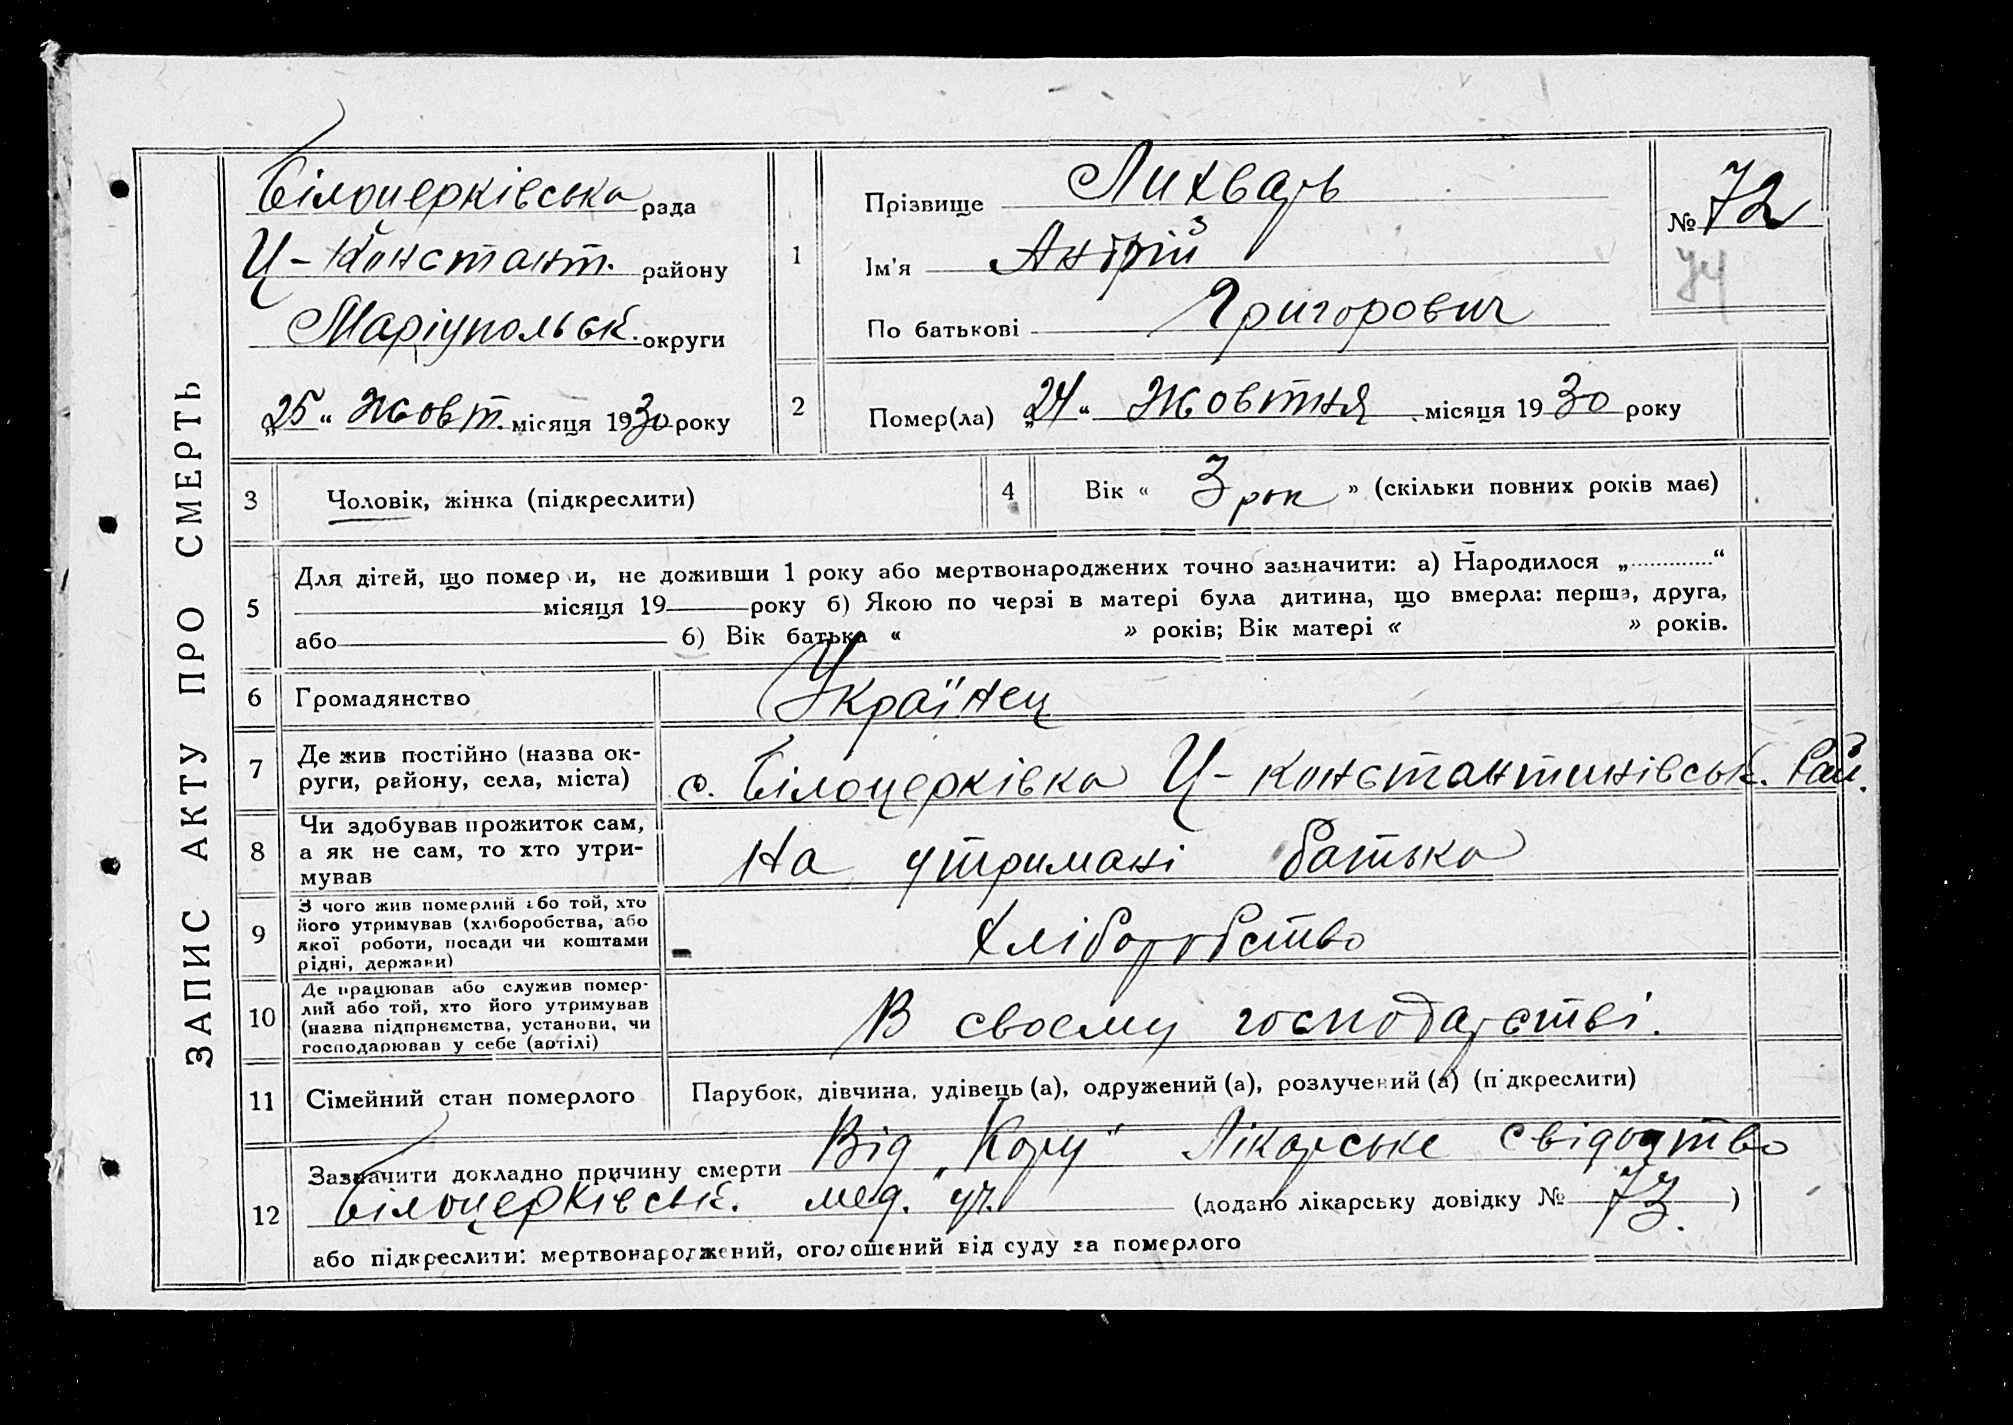 ЗАПИС АКТУ ПРО СМЕРТЬ
Білоцерківська рада
Ц-Констант. району
Маріупольськ. округи
„25“ Жовт. місяця 1930 року
1
Прізвище Лихварь
Ім'я Андрій
По батькові Григорович
№ 72
74
2
Помер(ла) „24“ Жовтня місяця 1930 року
3
Чоловік, жінка (підкреслити)
4
Вік « 3 рок » (скільки повних років має)
5
Для дітей, що померли, не доживши 1 року або мертвонароджених точно зазначити: а) Народилося „ “
місяця 19 року б) Якою по черзі в матері була дитина, що вмерла: перша, друга,
або б) Вік батька « » років; Вік матері « » років.
6
Громадянство
Українец
7
Де жив постійно (назва ок-
руги, району, села, міста)
с. Білоцерківка Ц-Константинівськ. Рай.
8
Чи здобував прожиток сам,
а як не сам, то хто утри-
мував
На утримані батька
9
З чого жив померлий або той, хто
його утримував (хліборобства, або
якої роботи, посади чи коштами
рідні, держави)
Хліборобство
10
Де працював або служив помер-
лий або той, хто його утримував
(назва підприємства, установи, чи
господарював у себе (артілі)
В своєму господарстві.
11
Сімейний стан померлого
Парубок, дівчина, удівець (а), одружений (а), розлучений (а) (підкреслити)
12
Зазначити докладно причину смерти Від „Кору“ Лікарське свідоцтво
Білоцерківськ. мед. уч. (додано лікарську довідку № 73. )
або підкреслити: мертвонароджений, оголошений від суду за померлого